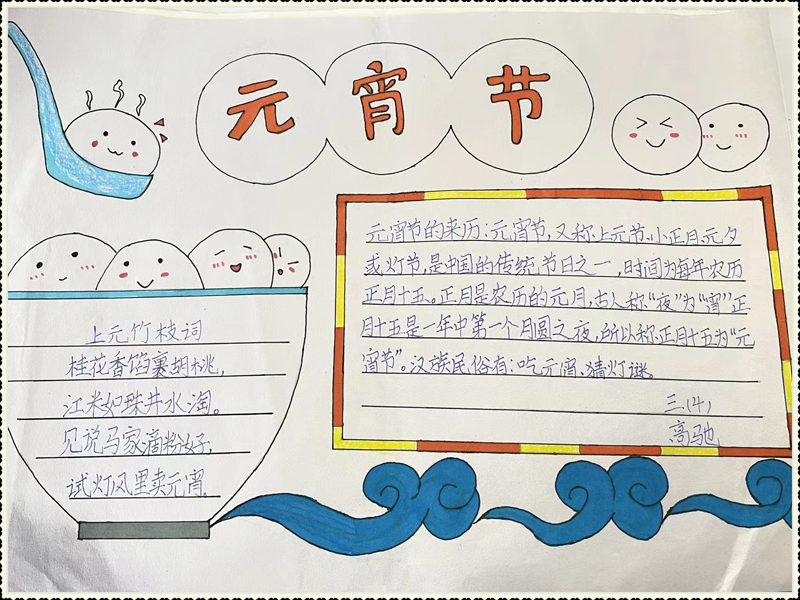 元宵节
元宵节的来历:元宵节,又称上元节、小正月、元夕
或灯节,是中国的传统节日之一,时间为每年农历
正月十五。正月是农历的元月,古人称“夜”为“宵”正
月十五是一年中第一个月圆之夜,所以称正月十五为“元
宵节”。汉族民俗有:吃元宵、猜灯谜。
三(4)
高驰
上元竹枝词
桂花香馅裹胡桃,
江米如珠井水淘。
见说马家滴粉好,
试灯风里卖元宵。